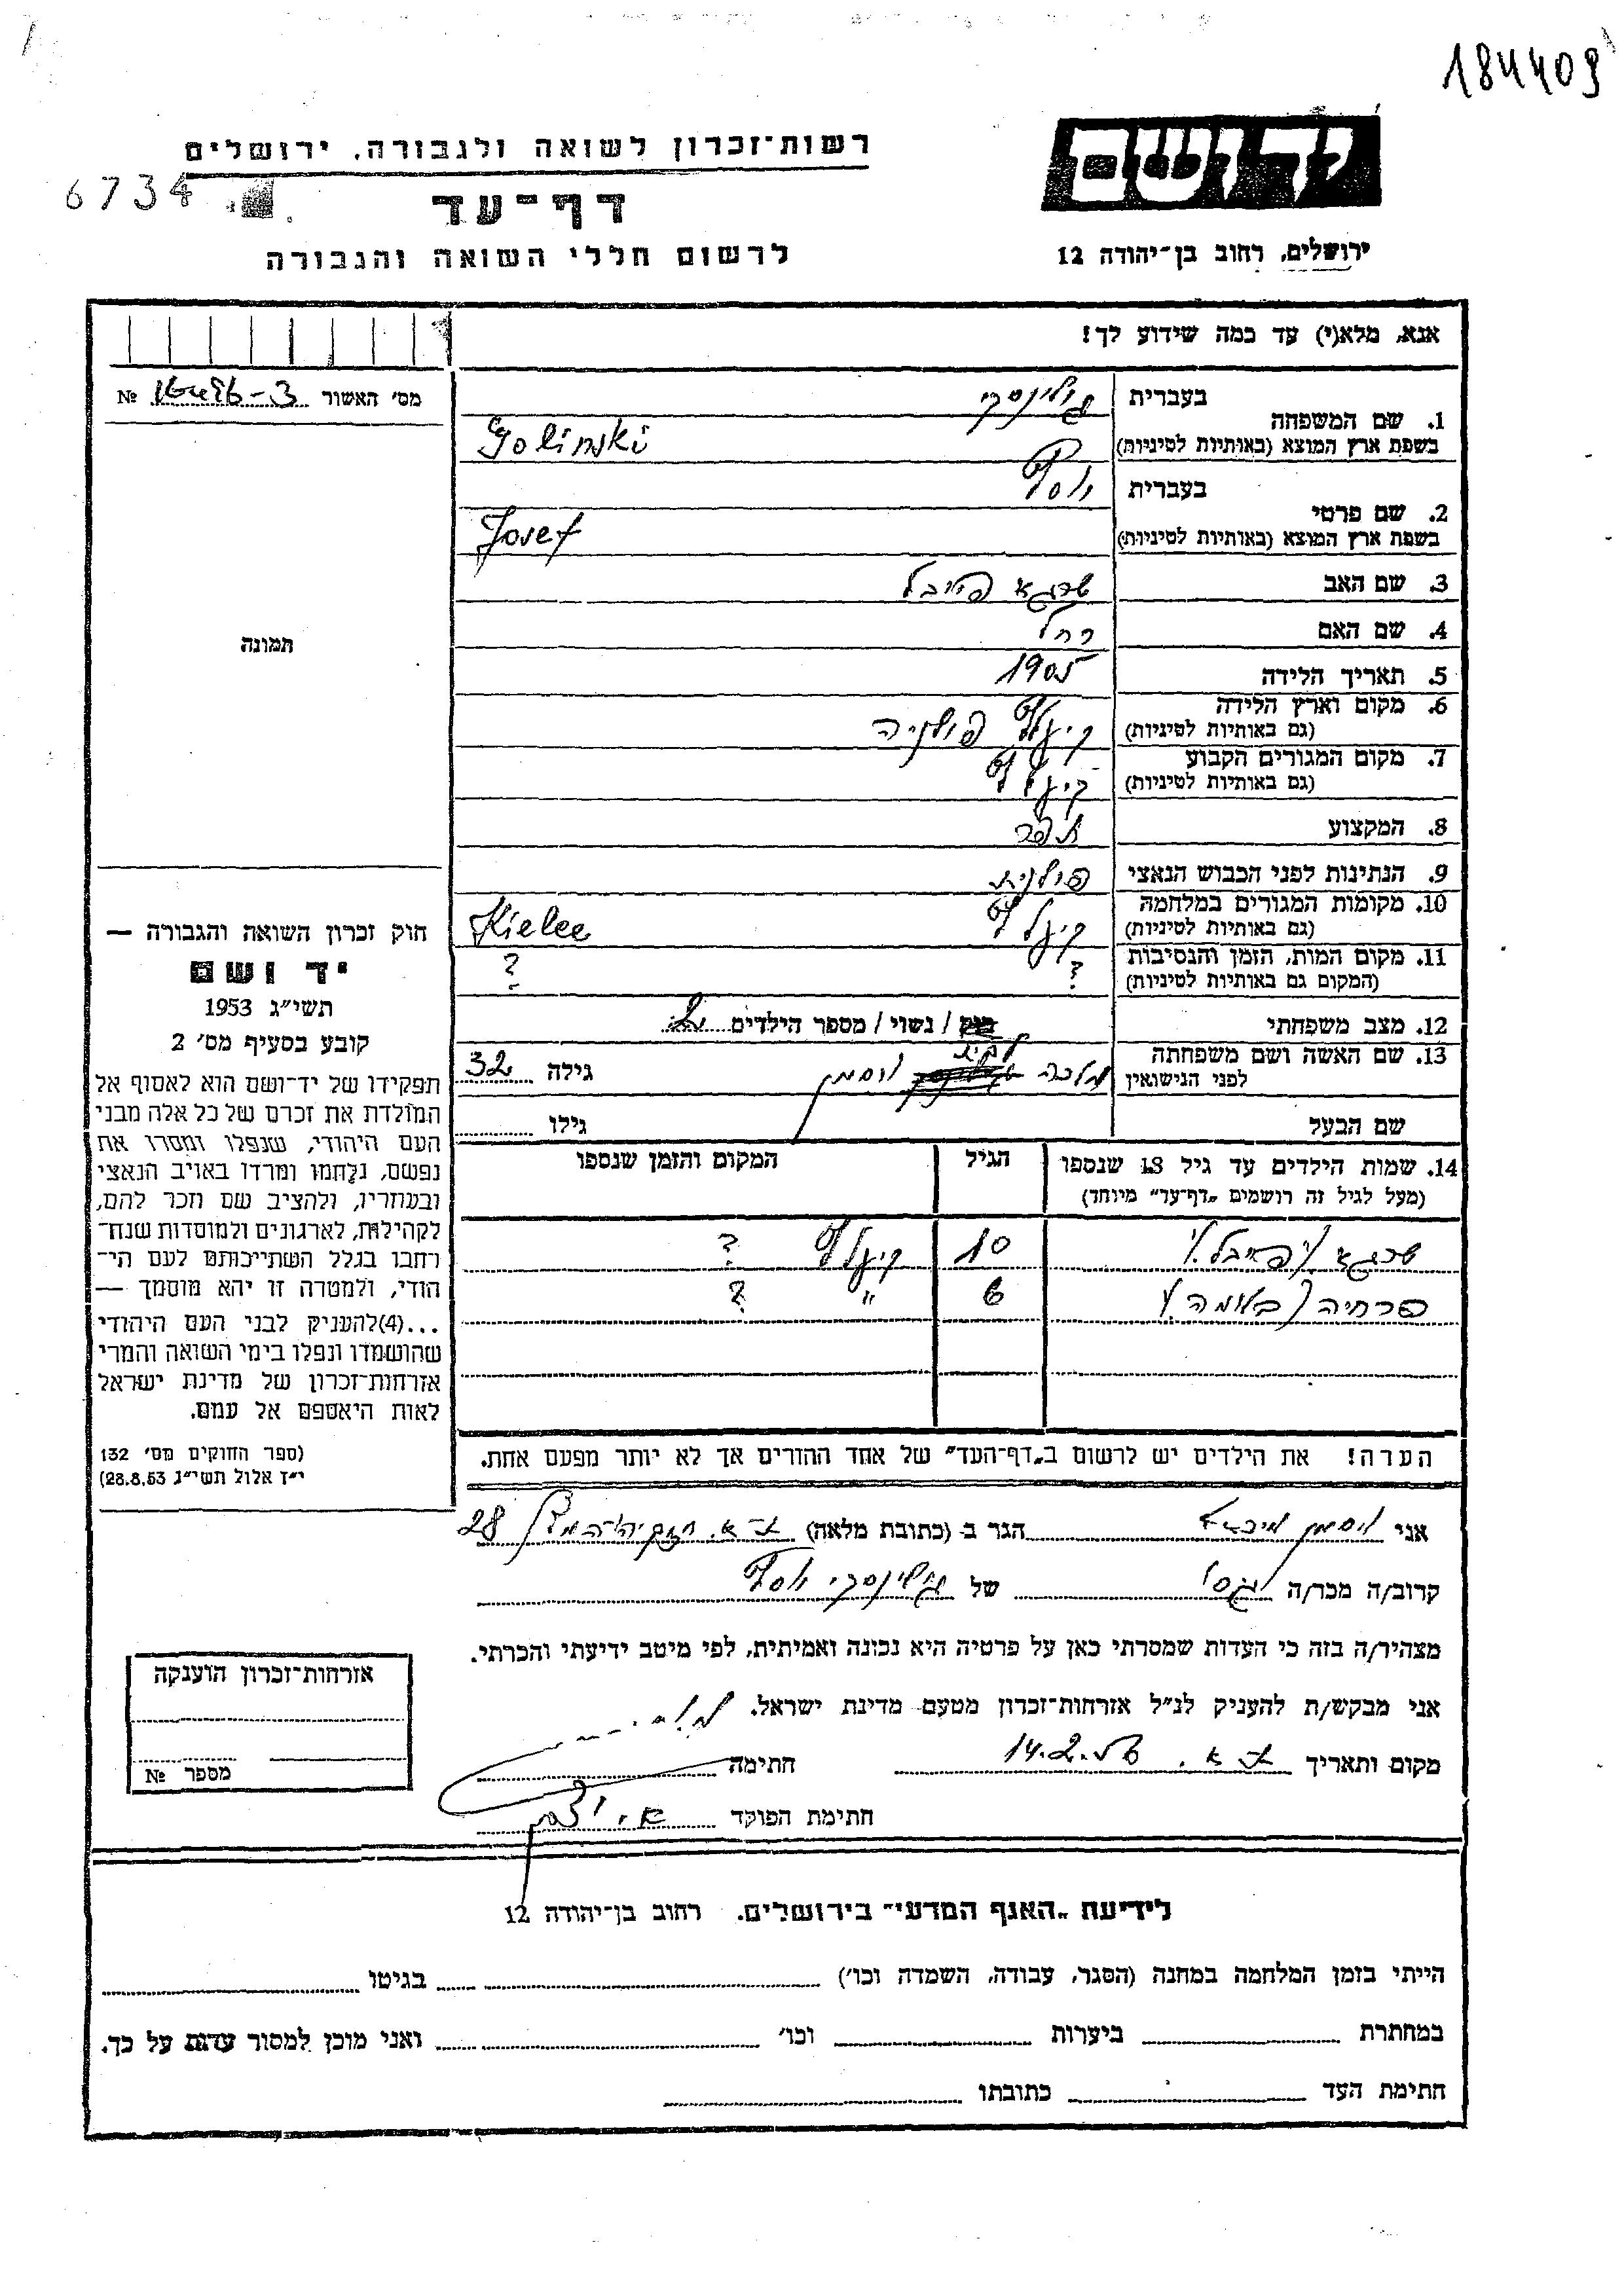 184409
יד ושם
רשות־זכרון לשואה ולגבורה, ירושלים
6734
דף־עד
לרשום חללי השואה והגבורה
ירושלים, רחוב בן־יהודה 12
אנא, מלא(י) עד כמה שידוע לך!
מס׳ האשור №
1. שם המשפחה
בעברית גולינסקי
בשפת ארץ המוצא (באותיות לטיניות) Golinski
2. שם פרטי
בעברית יוסף
בשפת ארץ המוצא (באותיות לטיניות) Josef
3. שם האב שרגא פייבל
4. שם האם רחל
5. תאריך הלידה 1905
6. מקום וארץ הלידה קיעלץ פולניה
(גם באותיות לטיניות)
7. מקום המגורים הקבוע קיעלץ
(גם באותיות לטיניות)
8. המקצוע תופר
9. הנתינות לפני הכבוש הנאצי פולנית
10. מקומות המגורים במלחמה קיעלץ Kielce
(גם באותיות לטיניות)
11. מקום המות, הזמן והנסיבות ? ?
(המקום גם באותיות לטיניות)
12. מצב משפחתי רווק / נשוי / מספר הילדים 2
13. שם האשה ושם משפחתה מלכה לבית גילה 32
לפני הנישואין
שם הבעל גילו
14. שמות הילדים עד גיל 18 שנספו הגיל המקום והזמן שנספו
(מעל לגיל זה רושמים „דף־עד״ מיוחד)
שרגא (פייבל) 10 קיעלץ ?
פרחיה (בלומה) 6 " ?
הערה! את הילדים יש לרשום ב„דף־העד״ של אחד ההורים אך לא יותר מפעם אחת.
תמונה
חוק זכרון השואה והגבורה —
יד ושם
תשי״ג 1953
קובע בסעיף מס׳ 2
תפקידו של יד־ושם הוא לאסוף אל
המולדת את זכרם של כל אלה מבני
העם היהודי, שנפלו ומסרו את
נפשם, נלחמו ומרדו באויב הנאצי
ובעוזריו, ולהציב שם וזכר להם,
לקהילות, לארגונים ולמוסדות שנח־
רחבו בגלל השתייכותם לעם הי־
הודי, ולמטרה זו יהא מוסמך —
...(4)להעניק לבני העם היהודי
שהושמדו ונפלו בימי השואה והמרי
אזרחות־זכרון של מדינת ישראל
לאות היאספם אל עמם.
(ספר החוקים מס׳ 132
י״ז אלול תשי״ג 28.8.53)
אני הגר ב־ (כתובת מלאה) ת־א. 28
קרוב/ה מכר/ה גיסו של גולינסקי יוסף
מצהיר/ה בזה כי העדות שמסרתי כאן על פרטיה היא נכונה ואמיתית, לפי מיטב ידיעתי והכרתי.
אני מבקש/ת להעניק לנ״ל אזרחות־זכרון מטעם מדינת ישראל.
מקום ותאריך ת־א. 14.2.56 חתימה
חתימת הפוקד
אזרחות־זכרון הוענקה
מספר №
לידיעת „האגף המדעי״ בירושלים, רחוב בן־יהודה 12
הייתי בזמן המלחמה במחנה (הסגר, עבודה, השמדה וכו׳) בגיטו
במחתרת ביערות וכו׳ ואני מוכן למסור עדות על כך.
חתימת העד כתובתו